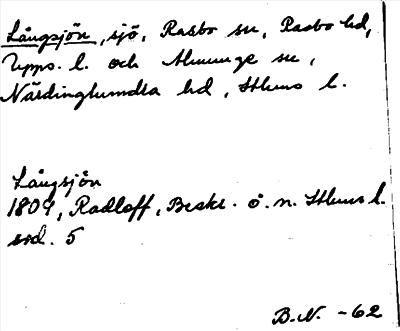 Långsjön, sjö, Rasbo sn, Rasbo hd,
Upps. l. och Almunge sn,
Närdinghundra hd, Sthms l.
Långsjön
1809, Radloff, Beskr. ö. n. Sthms l.
sid. 5
B.N. -62